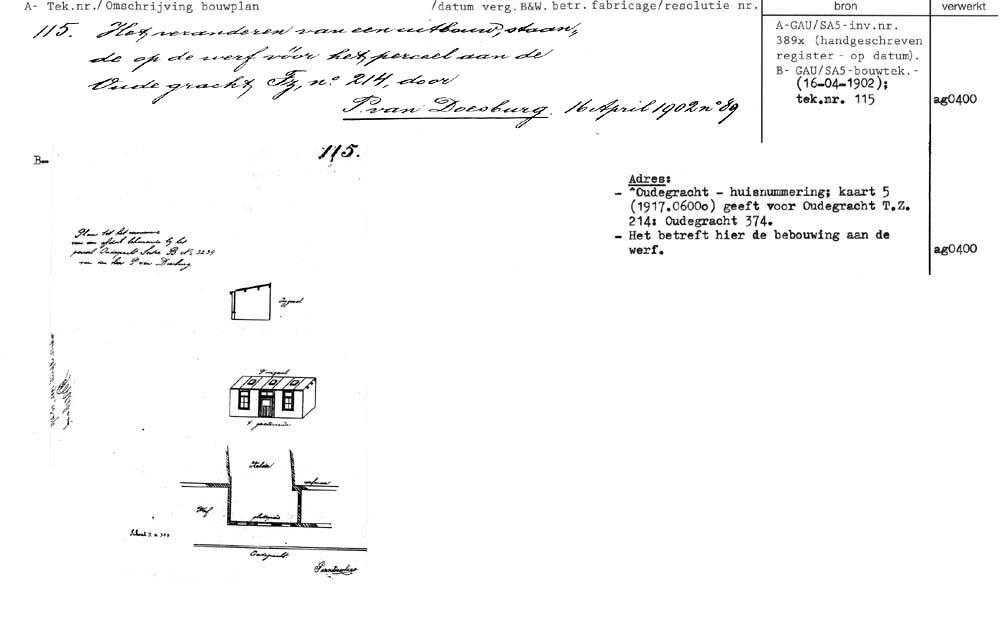 A- Tek.nr./Omschrijving bouwplan /datum verg. B&W. betr. fabricage/resolutie nr. bron verwerkt
115. Het veranderen van een uitbouw, staan,
de op de werf vóór het perceel aan de
Oude gracht, Tz, n° 214, door
P. van Doesburg. 16 April 1902 n° 89
A-GAU/SA5-inv.nr.
389x (handgeschreven
register - op datum).
B- GAU/SA5-bouwtek.-
(16-04-1902);
tek.nr. 115
ag0400
B-
115.
Adres:
- ^Oudegracht - huisnummering; kaart 5
(1917.0600o) geeft voor Oudegracht T.Z.
214: Oudegracht 374.
- Het betreft hier de bebouwing aan de
werf.
ag0400
Plan tot het
van een bij het
perceel Oudegracht Sectie B N° 3239
van den Heer P van Doesburg
Kelder
Werf
Schaal
Oudegracht